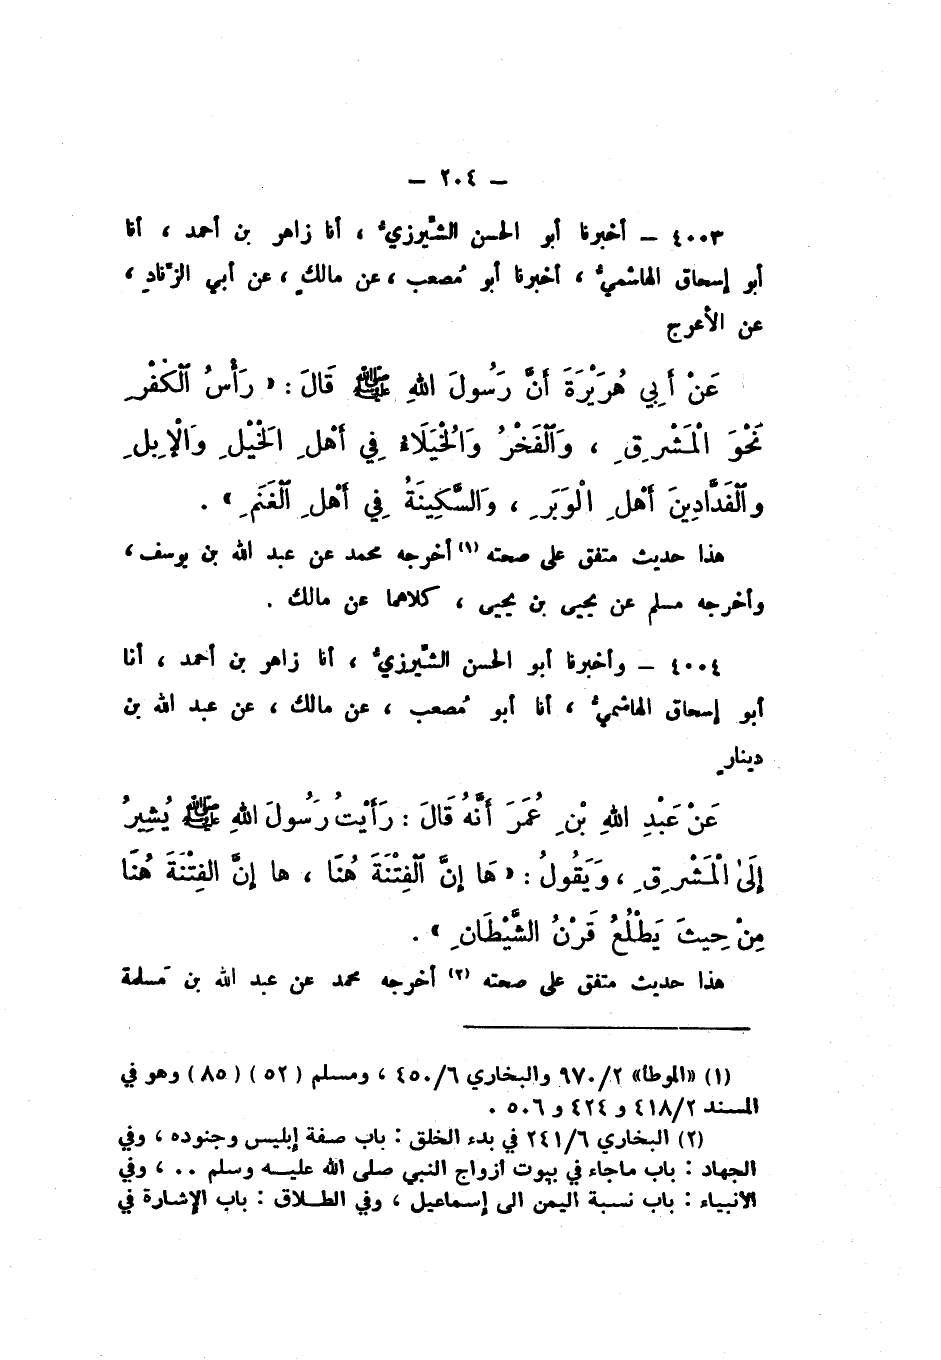 – ٢٠٤ –
٤٠٠٣ – أخبرنا أبو الحسن الشِّيرزيُّ ، أنا زاهر بن أحمد ، أنا
أبو إسحاق الهاشميُّ ، أخبرنا أبو مُصعب ، عن مالكٍ ، عن أبي الزِّنادِ ،
عن الأعرج
عَنْ أَبِي هُرَيْرَةَ أَنَّ رَسُولَ اللهِ ﷺ قَالَ : « رَأْسُ ٱلْكُفْرِ
نَحْوَ الْمَشْرِقِ ، وَٱلْفَخْرُ وَالْخُيَلَاءُ فِي أَهْلِ الْخَيْلِ وَالْإِبِلِ
وٱلْفَدَّادِينَ أَهْلِ الْوَبَرِ ، وَالسَّكِينَةُ فِي أَهْلِ ٱلْغَنَمِ » .
هذا حديث متفق على صحته (١) أخرجه محمد عن عبد الله بن يوسف ،
وأخرجه مسلم عن يحيى بن يحيى ، كلاهما عن مالك .
٤٠٠٤ – وأخبرنا أبو الحسن الشِّيرزيُّ ، أنا زاهر بن أحمد ، أنا
أبو إسحاق الهاشميُّ ، أنا أبو مُصعب ، عن مالك ، عن عبد الله بن
دينارٍ
عَنْ عَبْدِ اللهِ بْنِ عُمَرَ أَنَّهُ قَالَ : رَأَيْتُ رَسُولَ اللهِ ﷺ يُشِيرُ
إِلَىٰ الْمَشْرِقِ ، وَيَقُولُ : « هَا إِنَّ ٱلْفِتْنَةَ هُنَا ، ها إِنَّ الفِتْنَةَ هُنَا
مِنْ حِيثَ يَطْلُعُ قَرْنُ الشَّيْطَانِ » .
هذا حديث متفق على صحته (٢) أخرجه محمد عن عبد الله بن مَسلمة
(١) «الموطأ» ٩٧٠/٢ والبخاري ٤٥٠/٦ ، ومسلم ( ٥٢ ) ( ٨٥ ) وهو في
المسند ٤١٨/٢ و ٤٢٤ و ٥٠٦ .
(٢) البخاري ٢٤١/٦ في بدء الخلق : باب صفة إبليس وجنوده ، وفي
الجهاد : باب ماجاء في بيوت أزواج النبي صلى الله عليه وسلم . . ، وفي
الأنبياء : باب نسبة اليمن الى إسماعيل ، وفي الطلاق : باب الإشارة في